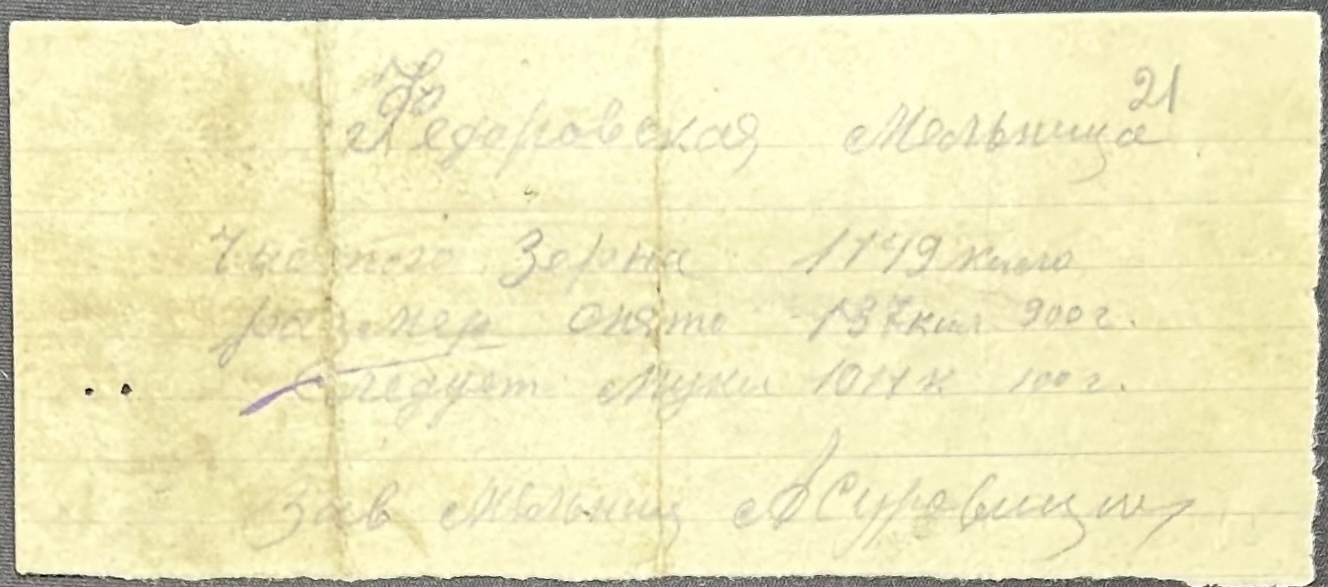 21
Федоровская Мельница
Чистого Зерна 1149 кило
размер снято 137 кил 900 г.
Следует Муки 1011 к 100 г.
Зав Мельниц